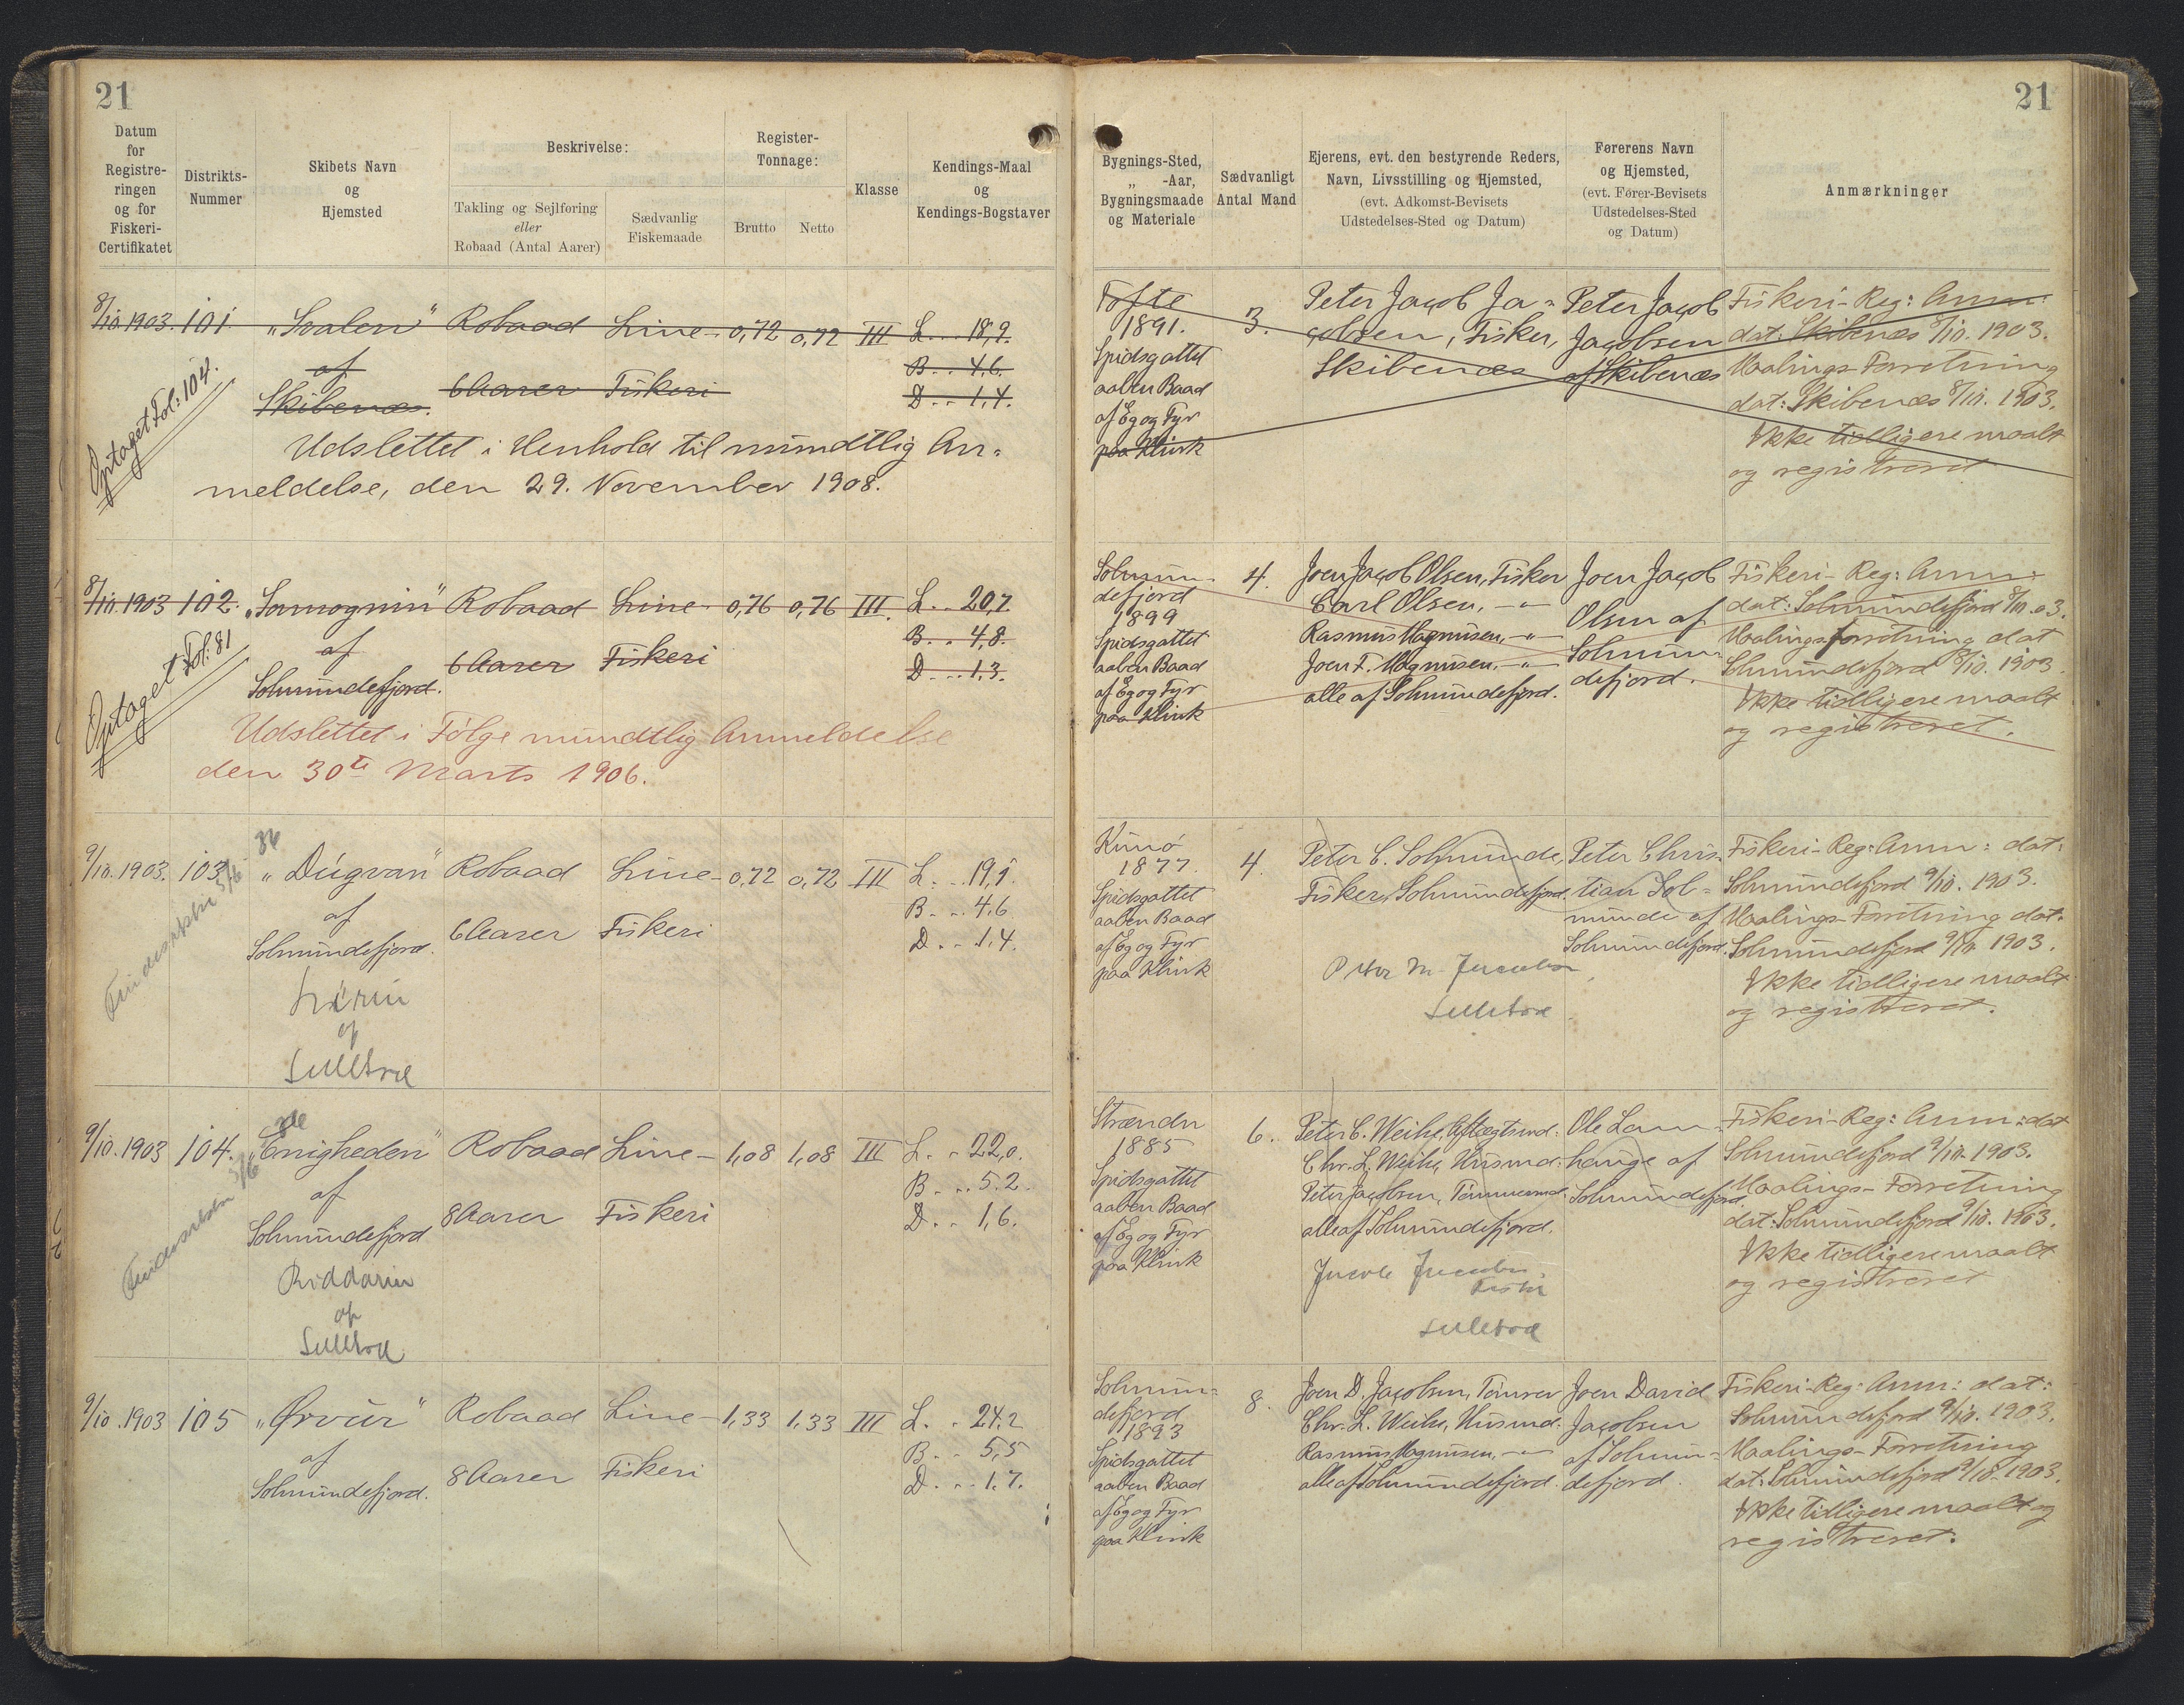 21
Datum
for
Registre-
ringen
og for
Fiskeri-
Certifikatet
Distrikts-
Nummer
Skibets Navn
og
Hjemsted
Beskrivelse:
Takling og Sejlføring
eller
Robaad (Antal Aarer)
Sædvanlig
Fiskemaade
Register-
Tonnage:
Brutto
Netto
Klasse
Kendings-Maal
og
Kendings-Bogstaver
8/10.1903. 101. „Svalen“ Robaad Line- 0,72 0,72 III L...18,9.
af B...4,6.
Skibenæs. 6 Aarer Fiskeri D...1,4.
Optaget Fol: 104.
Udslettet i Henhold til mundtlig An-
meldelse, den 29. November 1908.
8/10.1903 102. Robaad Line- 0,76 0,76 III. L...20,7
af B...4,8.
Solmundefjord. 6 Aarer Fiskeri D...1,3.
Optaget Fol: 81
Udslettet i Følge mundtlig Anmeldelse
den 30te Marts 1906.
9/10.1903. 103. „Dúgvan“ Robaad Line- 0,72 0,72 III L...19,1.
af B...4,6
Solmundefjord. 6 Aarer Fiskeri D...1,4.
af
9/10.1903 104. „Enigheden“ Robaad Line- 1,08 1,08 III L...22,0.
af B...5.2.
Solmundefjord 8 Aarer Fiskeri D...1,6.
Riddarin
af
9/10.1903 105 „Ørvur“ Robaad Line- 1,33 1,33 III L...24,2
af B...5,5
Solmundefjord. 8 Aarer Fiskeri D...1,7.
21
Bygnings-Sted,
„ -Aar,
Bygningsmaade
og Materiale
Sædvanligt
Antal Mand
Ejerens, evt. den bestyrende Reders,
Navn, Livsstilling og Hjemsted,
(evt. Adkomst-Bevisets
Udstedelses-Sted og Datum)
Førerens Navn
og Hjemsted,
(evt. Fører-Bevisets
Udstedelses-Sted
og Datum)
Anmærkninger
Tofte
1891.
Spidsgattet
aaben Baad
af Eg og Fyr
paa Klink
3.
Peter Jacob Ja-
cobsen, Fisker,
Skibenæs
Peter Jacob
Jacobsen
af Skibenæs
Fiskeri-Reg: Anm:
dat: Skibenæs 8/10. 1903.
Maalings-Forretning
dat: Skibenæs 8/10. 1903.
Ikke tidligere maalt
og registreret
Solmun-
defjord
1899
Spidsgattet
aaben Baad
af Eg og Fyr
paa Klink
4.
Joen Jacob Olsen, Fisker
Carl Olsen, -"-
Rasmus Magnusen, -"-
Joen F. Magnusen, -"-
alle af Solmundefjord.
Joen Jacob
Olsen af
Solmun-
defjord.
Fiskeri-Reg: Anm:
dat: Solmundefjord 8/10.03.
Maalingsforretning dat
Solmundefjord 8/10. 1903
Ikke tidligere maalt
og registreret.
Kunø
1877.
Spidsgattet
aaben Baad
af Eg og Fyr
paa Klink
4.
Peter C. Solmunde,
Fisker, Solmundefjord.
Peter Chris-
tian Sol-
munde af
Solmundefjord.
Fiskeri-Reg: Anm: dat:
Solmundefjord 9/10. 1903.
Maalings-Forretning dat.
Solmundefjord 9/10. 1903.
Ikke tidligere maalt
og registreret.
Strændr
1885
Spidsgattet
aaben Baad
af Eg og Fyr
paa Klink
6.
Peter C. Weihe, Aftægtsmd:
Chr. L. Weihe, Husmd:
Peter Jacobsen, Tømmermd.
alle af Solmundefjord.
Ole Lam-
hauge af
Solmundefjord.
Fiskeri-Reg: Anm: dat
Solmundefjord 9/10. 1903.
Maalings-Forretning
dat: Solmundefjord 9/10. 1903.
Ikke tidligere maalt
og registreret
Solmun-
defjord
1893
Spidsgattet
aaben Baad
af Eg og Fyr
paa Klink
8.
Joen D. Jacobsen, Tømrer
Chr. L. Weihe, Husmd:
Rasmus Magnusen, -"-
alle af Solmundefjord.
Joen David
Jacobsen
af Solmun-
defjord.
Fiskeri-Reg: Anm: dat:
Solmundefjord 9/10. 1903.
Maalings-Forretning
dat: Solmundefjord 9/10. 1903.
Ikke tidligere maalt og
registreret.